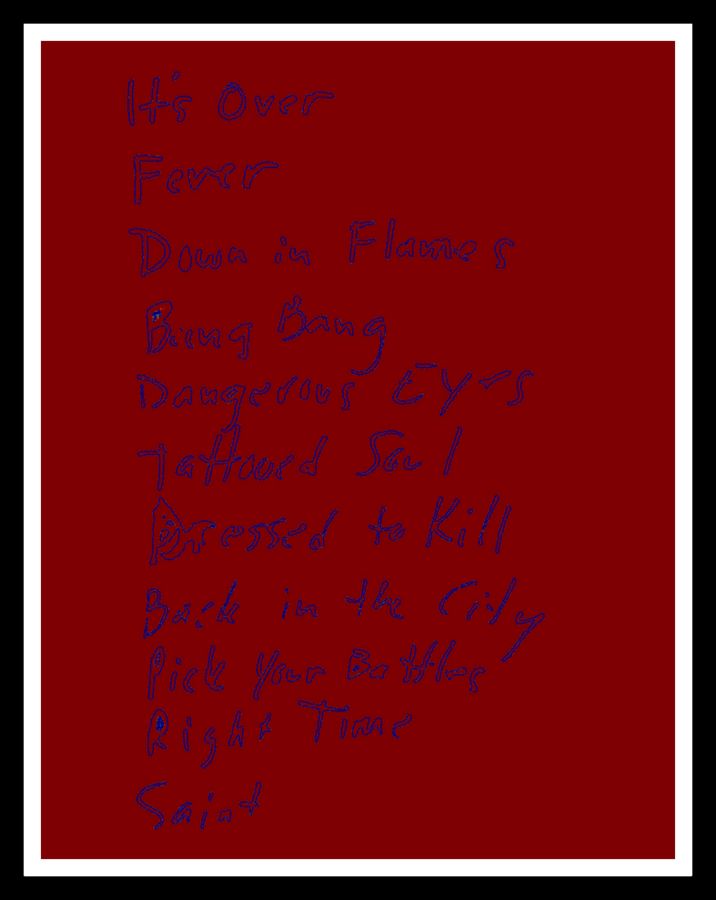 It's Over
Fever
Down in Flames
Bang Bang
Dangerous Eyes
Tattooed Soul
Dressed to Kill
Back in the City
Pick Your Battles
Right Time
Saint